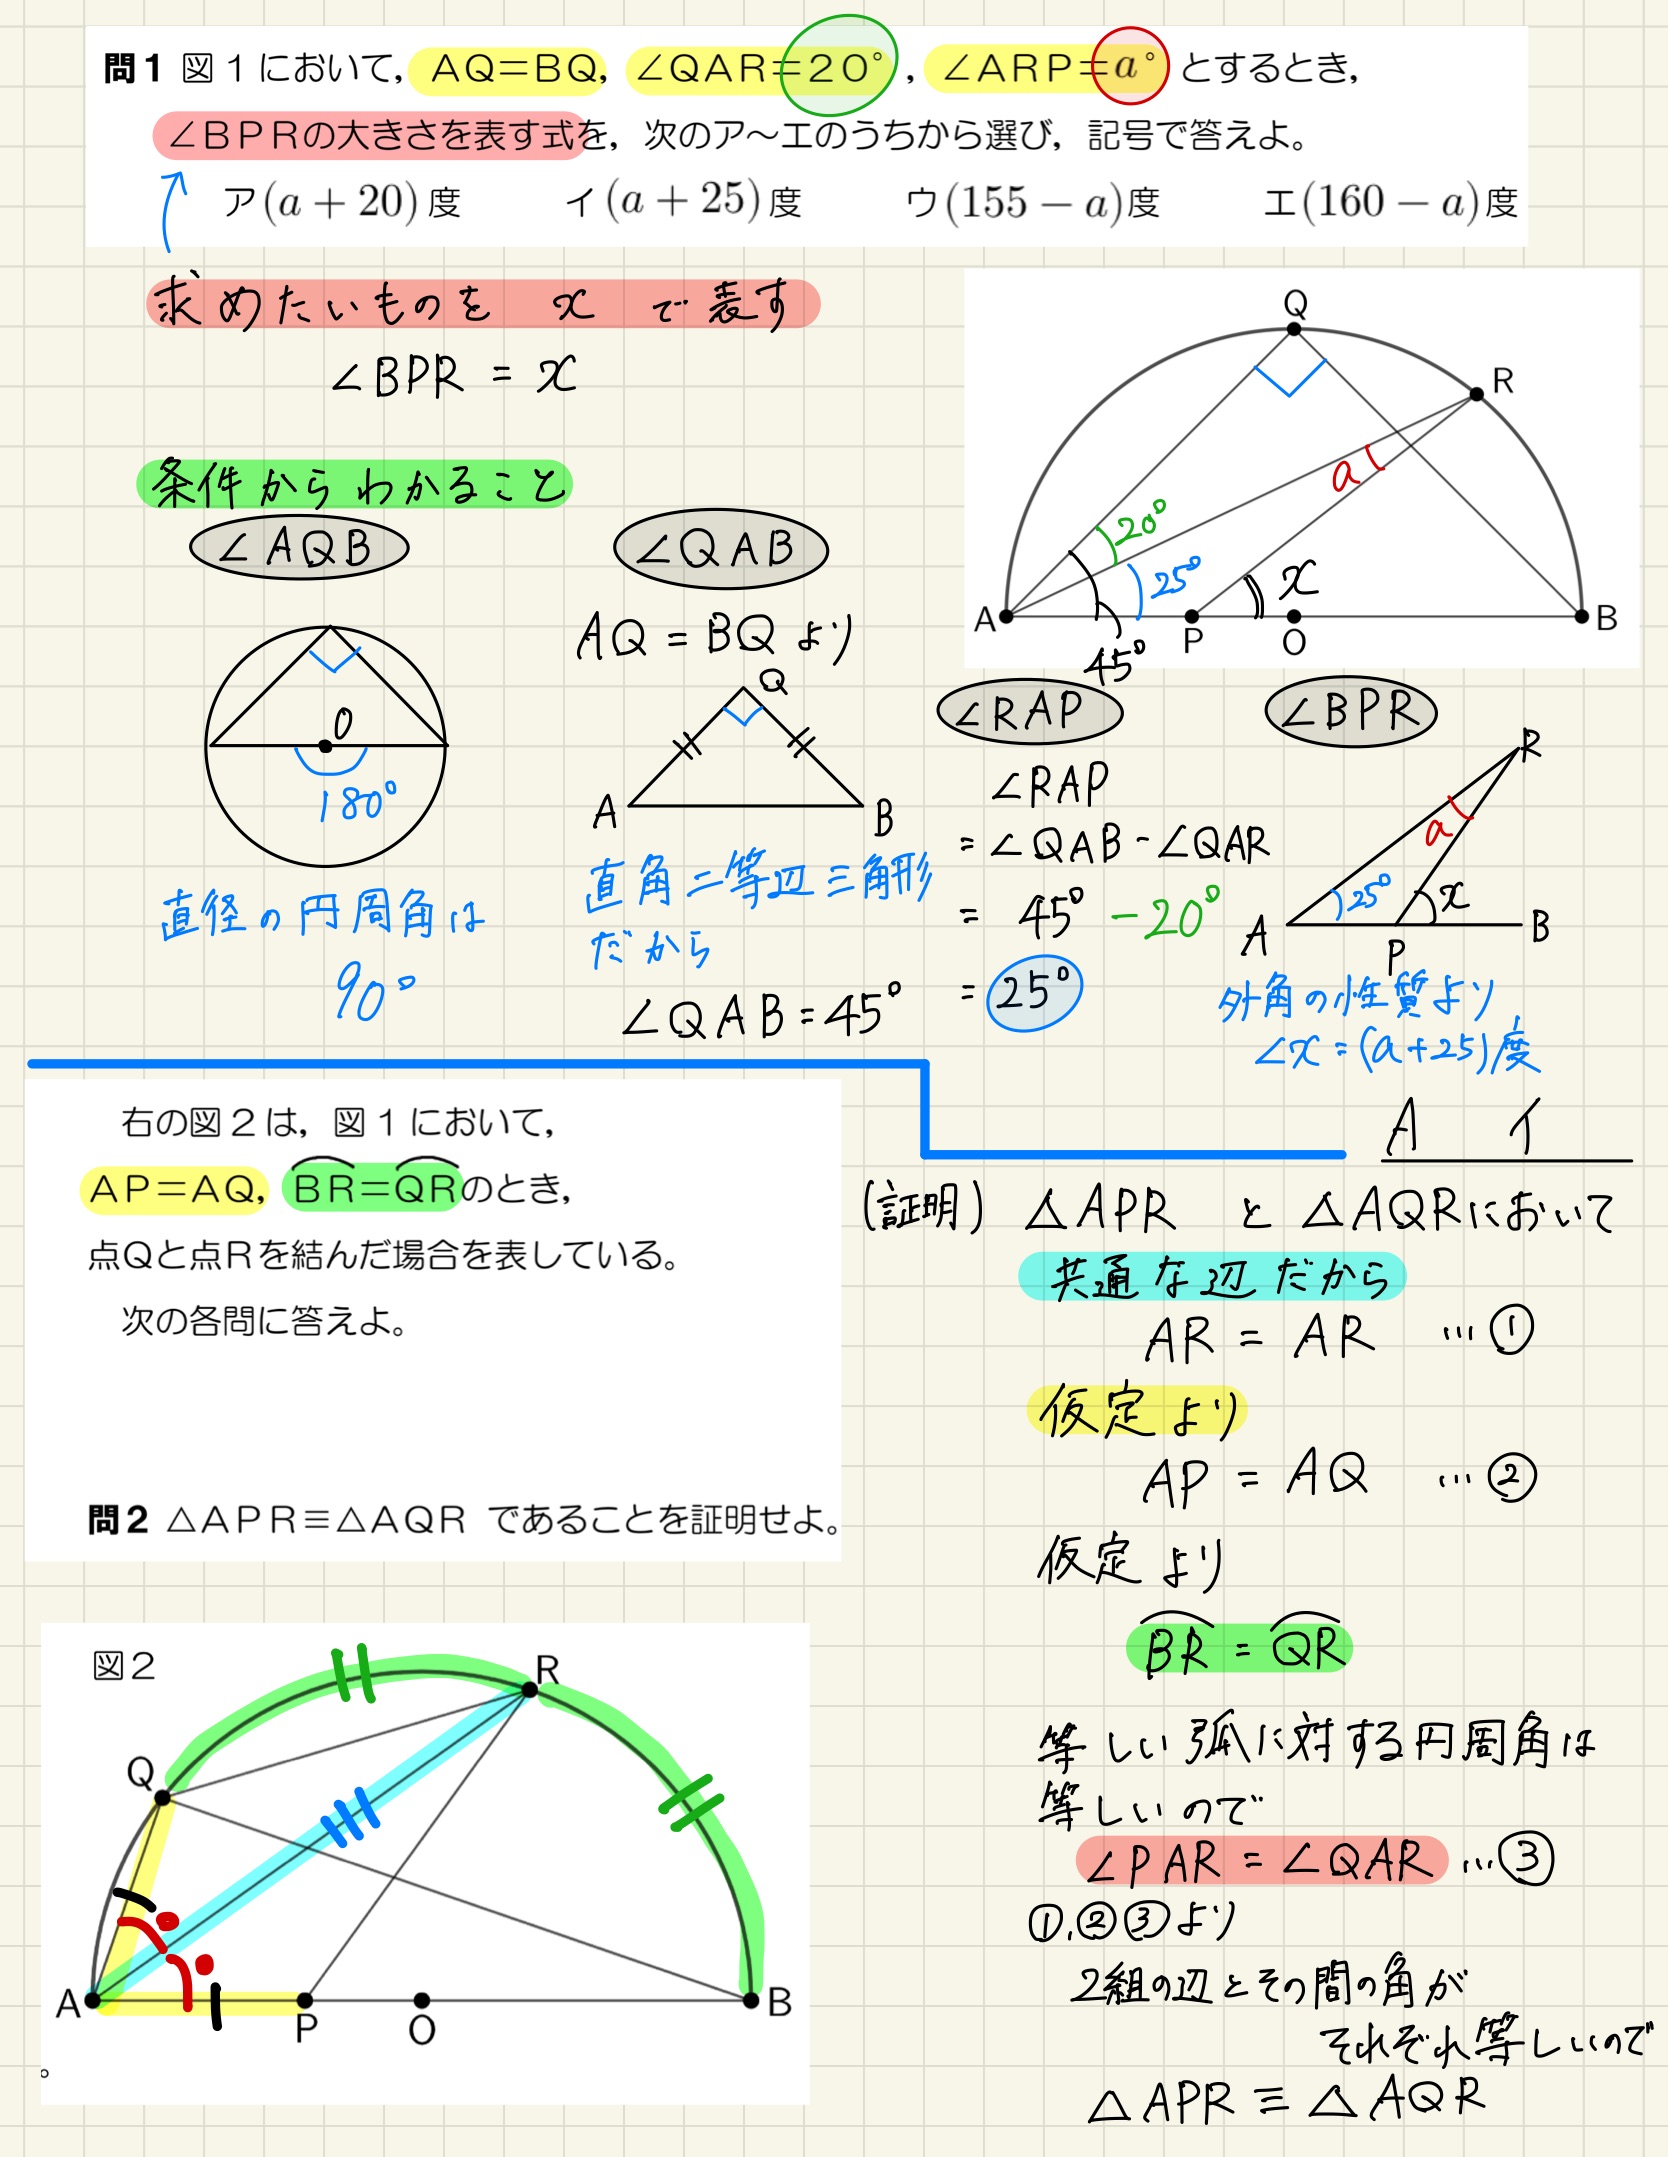 問1 図1において，AQ=BQ，∠QAR=20°，∠ARP=a°とするとき，
∠BPRの大きさを表す式を，次のア〜エのうちから選び，記号で答えよ。
ア(a + 20)度 イ(a + 25)度 ウ(155 − a)度 エ(160 − a)度
求めたいものを x で表す
∠BPR = x
条件からわかること
∠AQB
O
180°
直径の円周角は
90°
∠QAB
AQ = BQ より
Q
A
B
直角二等辺三角形
だから
∠QAB=45°
Q
R
a
20°
25°
x
A
P
O
B
45°
∠RAP
∠RAP
= ∠QAB - ∠QAR
= 45° - 20°
= 25°
∠BPR
R
a
25°
x
A
P
B
外角の性質より
∠x = (a+25)度
A イ
右の図2は，図1において，
AP=AQ，BR=QRのとき，
点Qと点Rを結んだ場合を表している。
次の各問に答えよ。
問2 △APR≡△AQR であることを証明せよ。
図2
R
Q
A
P
O
B
。
(証明) △APR と △AQRにおいて
共通な辺だから
AR = AR …①
仮定より
AP = AQ …②
仮定より
BR = QR
等しい弧に対する円周角は
等しいので
∠PAR = ∠QAR …③
①,②③より
2組の辺とその間の角が
それぞれ等しいので
△APR ≡ △AQR